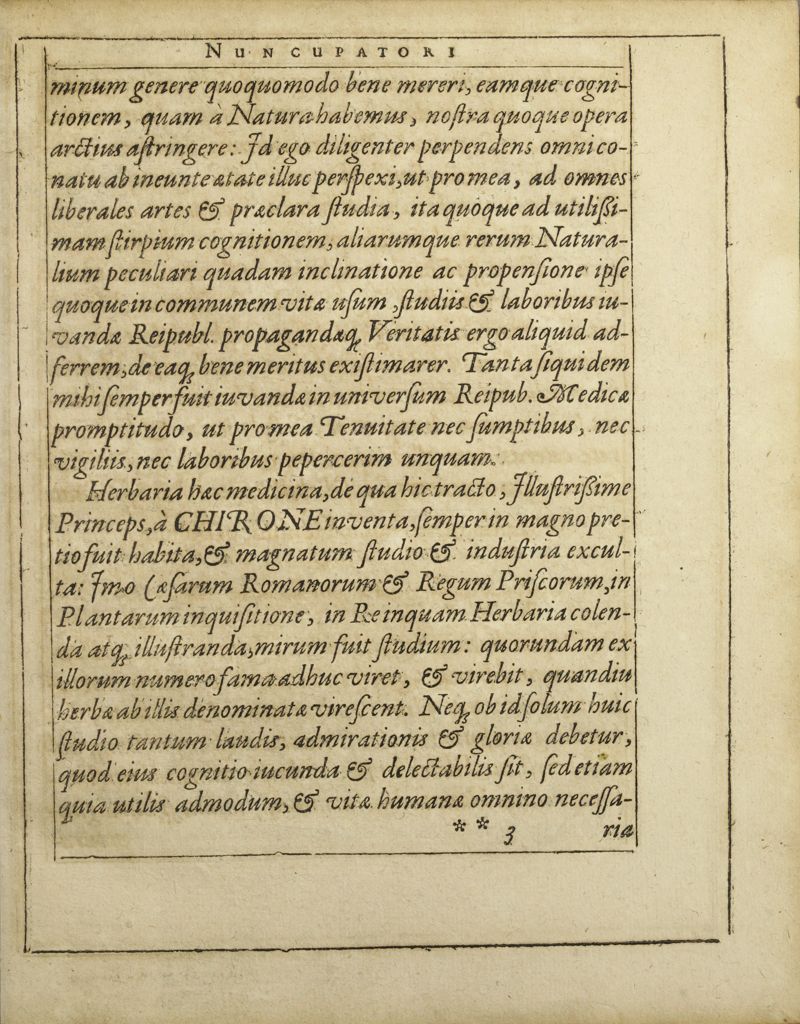 NUNCUPATORI
minum genere quoquomodo bene mereri, eamque cogni-
tionem, quam à Natura habemus, noſtra quoque opera
arctius aſtringere: Id ego diligenter perpendens omni co-
natu ab ineunte ætate illuc perſpexi, ut pro mea, ad omnes
liberales artes & præclara ſtudia, ita quoque ad utiliſsi-
mam ſtirpium cognitionem, aliarumque rerum Natura-
lium peculiari quadam inclinatione ac propenſione ipſe
quoque in communem vitæ uſum, ſtudiis & laboribus iu-
vandæ Reipubl. propagandæq; Veritatis ergo aliquid ad-
ferrem, de eaq; bene meritus exiſtimarer. Tanta ſiquidem
mihi ſemper fuit iuvandæ in univerſum Reipub. Medicæ
promptitudo, ut pro mea Tenuitate nec ſumptibus, nec
vigiliis, nec laboribus pepercerim unquam.
Herbaria hæc medicina, de qua hic tracto, Illuſtriſsime
Princeps, à CHIRONE inventa, ſemper in magno pre-
tio fuit habita, & magnatum ſtudio & induſtria excul-
ta: Imo Cæſarum Romanorum & Regum Priſcorum, in
Plantarum inquiſitione, in Re inquam Herbaria colen-
da atq; illuſtranda, mirum fuit ſtudium: quorundam ex
illorum numero fama adhuc viret, & virebit, quandiu
herbæ ab illis denominatæ vireſcent. Neq; ob id ſolum huic
ſtudio tantum laudis, admirationis & gloriæ debetur,
quod eius cognitio iucunda & delectabilis ſit, ſed etiam
quia utilis admodum, & vitæ humanæ omnino neceſſa-
** 3 ria